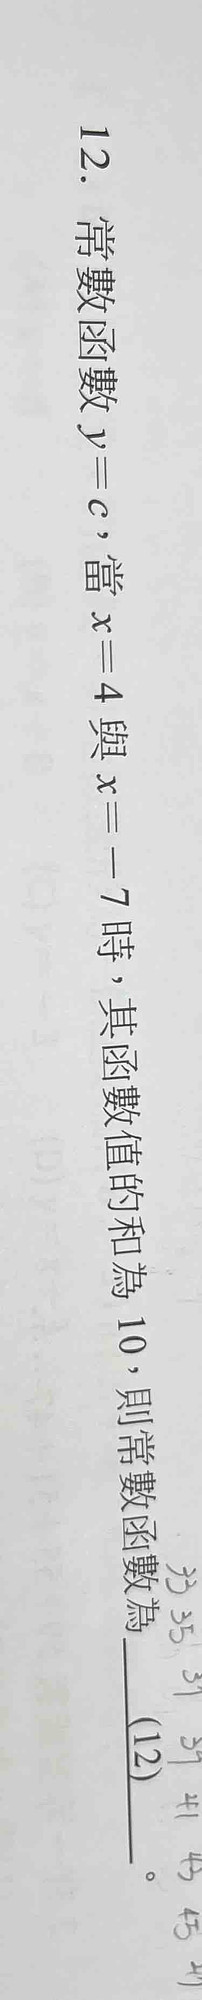 12. 常數函數 y=c，當 x=4 與 x=－7 時，其函數值的和為 10，則常數函數為 (12) 。
33 35 37 39 41 43 45 47